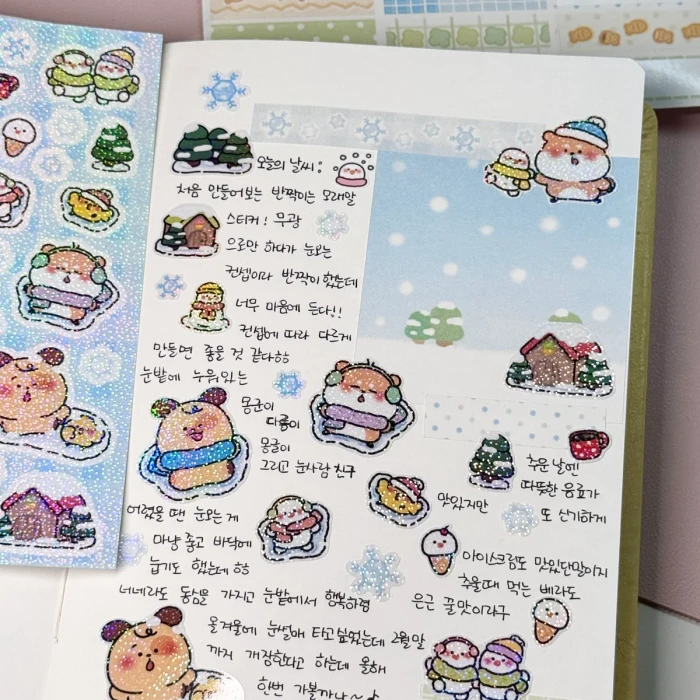 오늘의 날씨:
처음 만들어보는 반짝이는 모래알
스티커! 무광
으로만 하다가 눈오는
컨셉이라 반짝이 했는데
너무 마음에 든다!!
컨셉에 따라 다르게
만들면 좋을 것 같다ㅎㅎ
눈밭에 누워있는
몽군이
다롱이
몽글이
그리고 눈사람 친구
어렸을 땐 눈오는 게
마냥 좋고 바닥에
눕기도 했는데 ㅎㅎ
너네라도 동심을 가지고 눈밭에서 행복하렴
올겨울에 눈썰매 타고싶었는데 2월말
까지 개장한다고 하는데 올해
한번 가볼까나~
추운 날엔
따뜻한 음료가
맛있지만 또 신기하게
아이스크림도 맛있단말이지
추울때 먹는 베라도
은근 꿀맛이라구